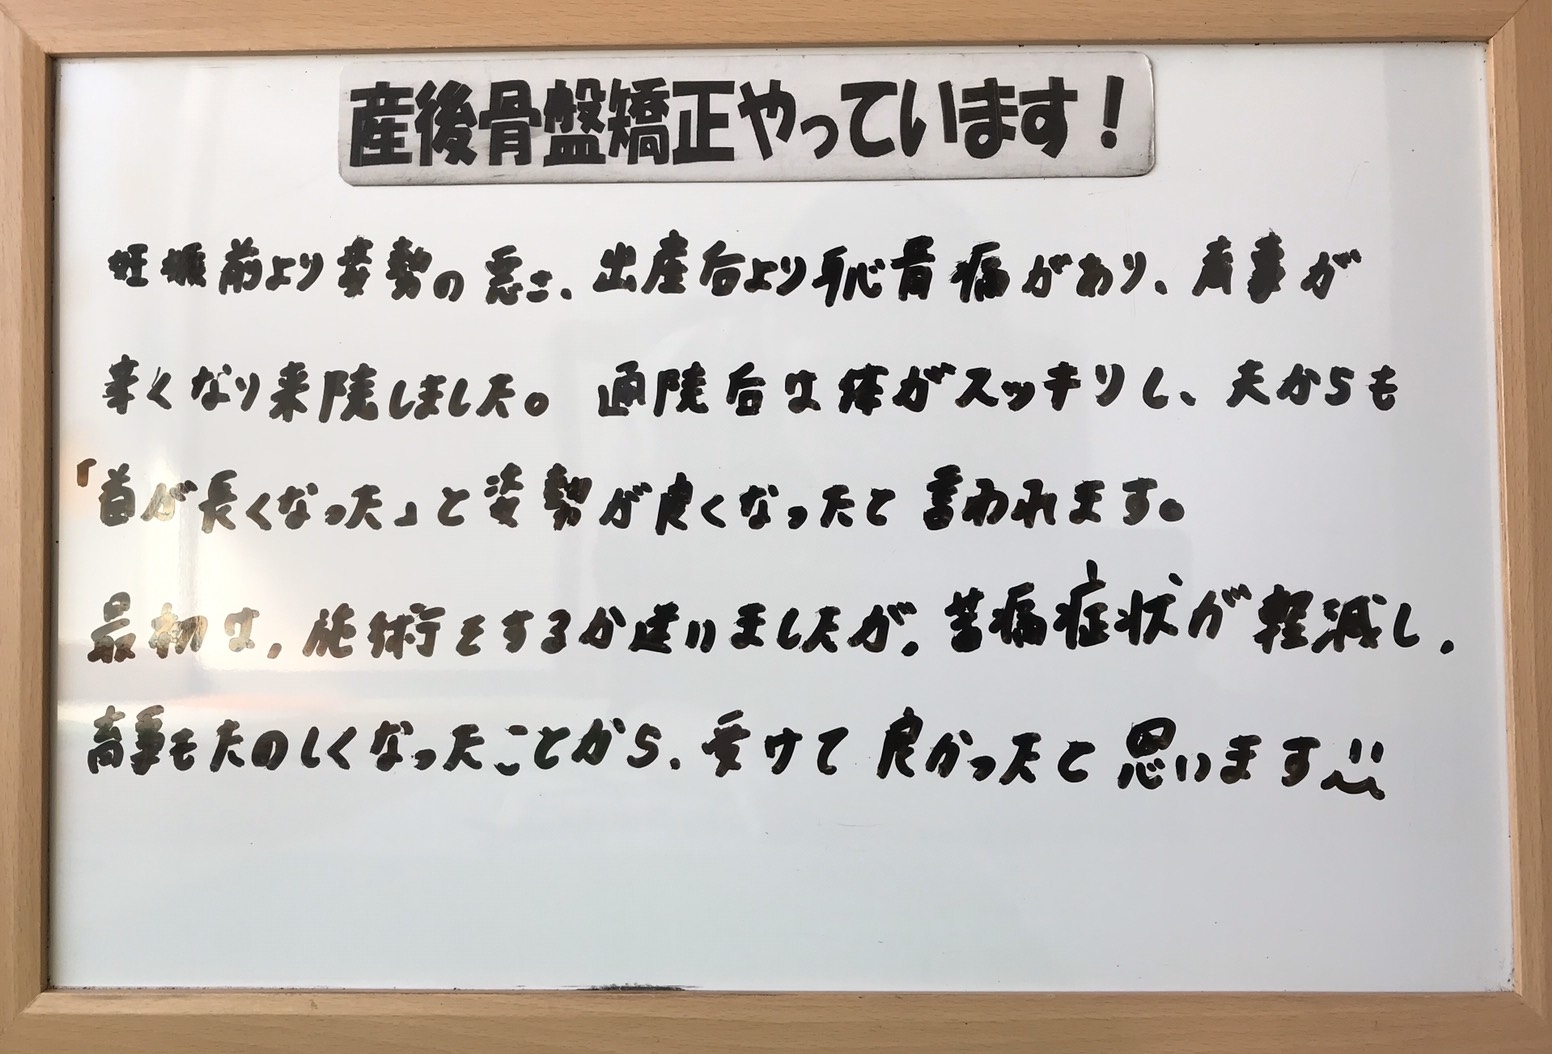 産後骨盤矯正やっています！
妊娠前より姿勢の悪さ、出産后より恥骨痛があり、育事が
辛くなり来院しました。 通院后は体がスッキリし、夫からも
「首が長くなった」と姿勢が良くなったと言われます。
最初は、施術をするか迷いましたが、苦痛症状が軽減し、
育事もたのしくなったことから、受けて良かったと思います